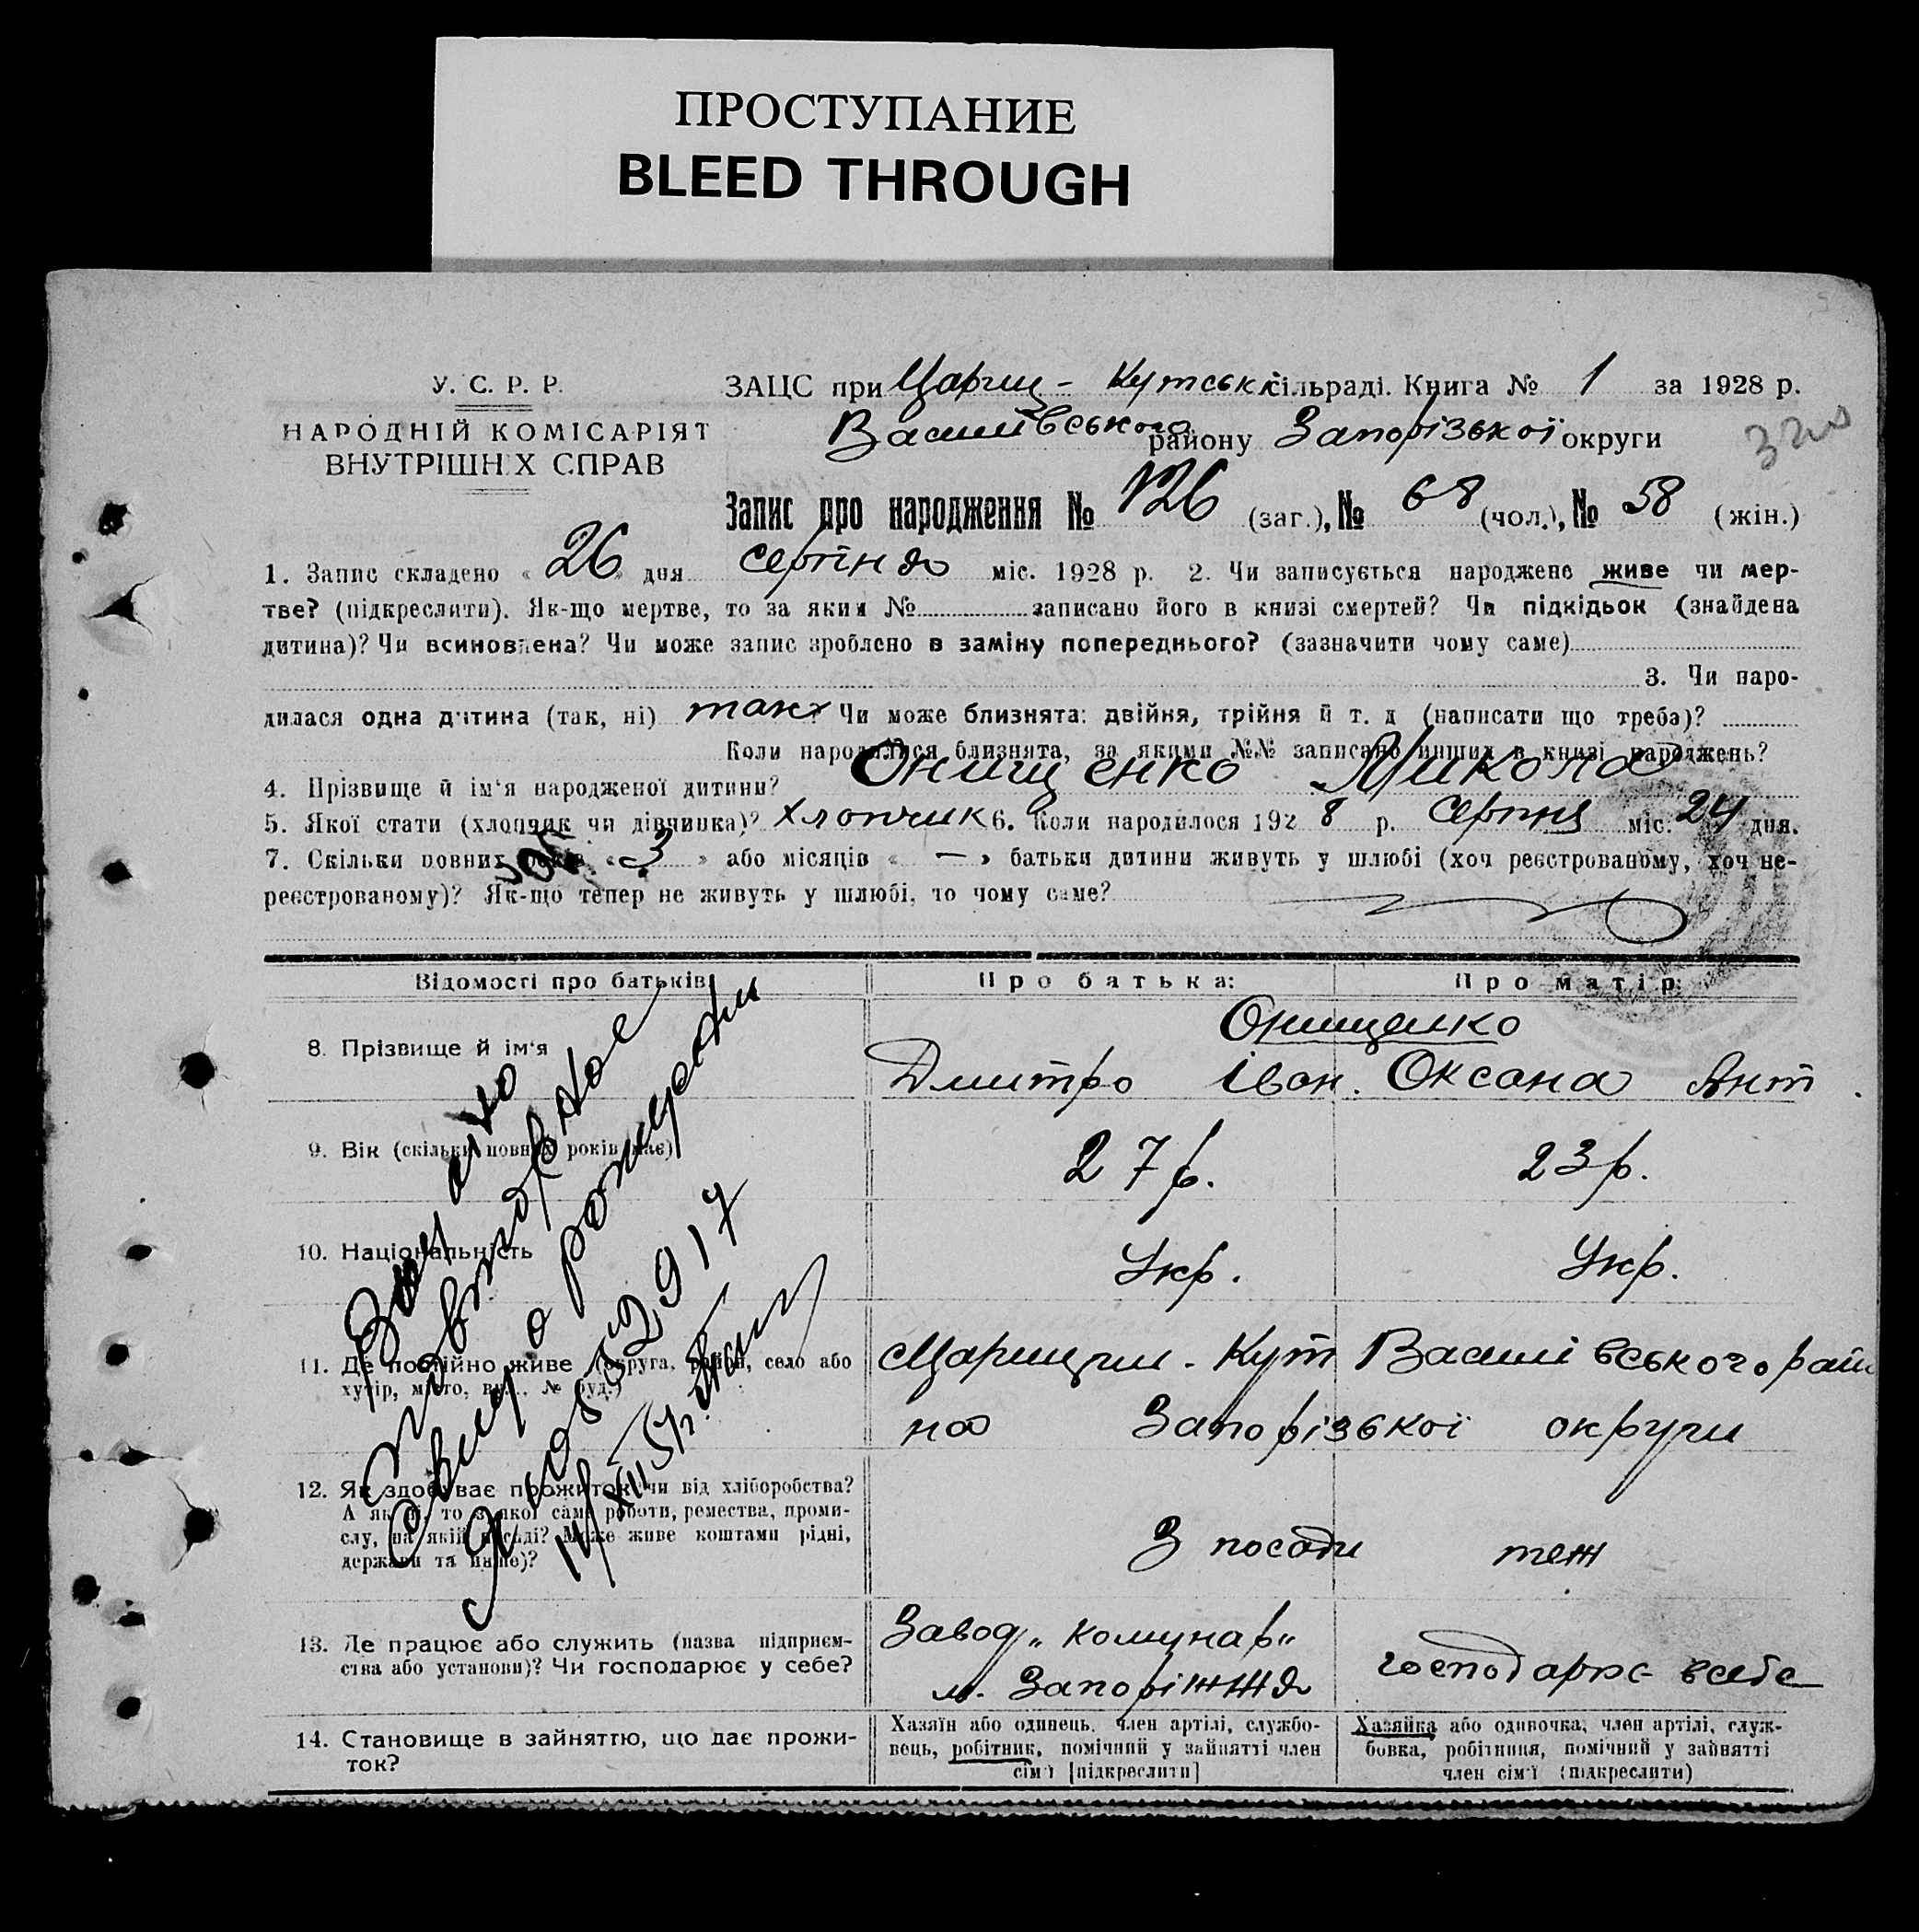 ПРОСТУПАНИЕ
BLEED THROUGH
У. С. Р. Р.
НАРОДНІЙ КОМІСАРІЯТ
ВНУТРІШНІХ СПРАВ
ЗАЦС при Цариц- Кутській сільраді. Книга № 1 за 1928 р.
Василівського району Запорізької округи
Запис про народження № 126 (заг.), № 68 (чол.), № 58 (жін.)
1. Запис складено « 26 » дня серпня міс. 1928 р. 2. Чи записується народжене живе чи мер-
тве? (підкреслити). Як-що мертве, то за яким № записано його в книзі смертей? Чи підкідьок (знайдена
дитина)? Чи всиновлена? Чи може запис зроблено в заміну попереднього? (зазначити чому саме)
3. Чи наро-
дилася одна дитина (так, ні) так? Чи може близнята: двійня, трійня й т. д (написати що треба)?
Коли народилися близнята, за якими №№ записано инших в книзі народжень?
4. Прізвище й ім'я народженої дитини? Онищенко Микола
5. Якої стати (хлопчик чи дівчинка)? хлопчик 6. Коли народилося 1928 р. серпня міс. 24 дня.
7. Скільки повних років « 3 » або місяців « — » батьки дитини живуть у шлюбі (хоч реєстрованому, хоч не-
реєстрованому)? Як-що тепер не живуть у шлюбі, то чому саме?
Відомості про батьків
Про батька:
Про матір:
Онищенко
8. Прізвище й ім'я
Дмитро Іван.
Оксана Ант.
9. Вік (скільки повних років має)
27 р.
23 р.
10. Національність
Укр.
Укр.
11. Де постійно живе (округа, район, село або
хутір, місто, вул., № буд.)
Царицин. Кут Василівського рай
на Запорізької округи
12. Як здобуває прожиток: чи від хліборобства?
А як ні, то з якої саме роботи, ремества, проми-
слу, на якій посаді? Може живе коштами рідні,
держави та инше)?
З посади
теж
13. Де працює або служить (назва підприєм-
ства або установи)? Чи господарює у себе?
Завод „Комунар“
м. Запоріжжя
господарює в себе
14. Становище в зайняттю, що дає прожи-
ток?
Хазяїн або одинець, член артілі, службо-
вець, робітник, помічний у зайнятті член
сім'ї [підкреслити]
Хазяйка або одиночка, член артілі, служ-
бовка, робітниця, помічний у зайнятті
член сім'ї (підкреслити)
Выдано
повторное
свид о рождении